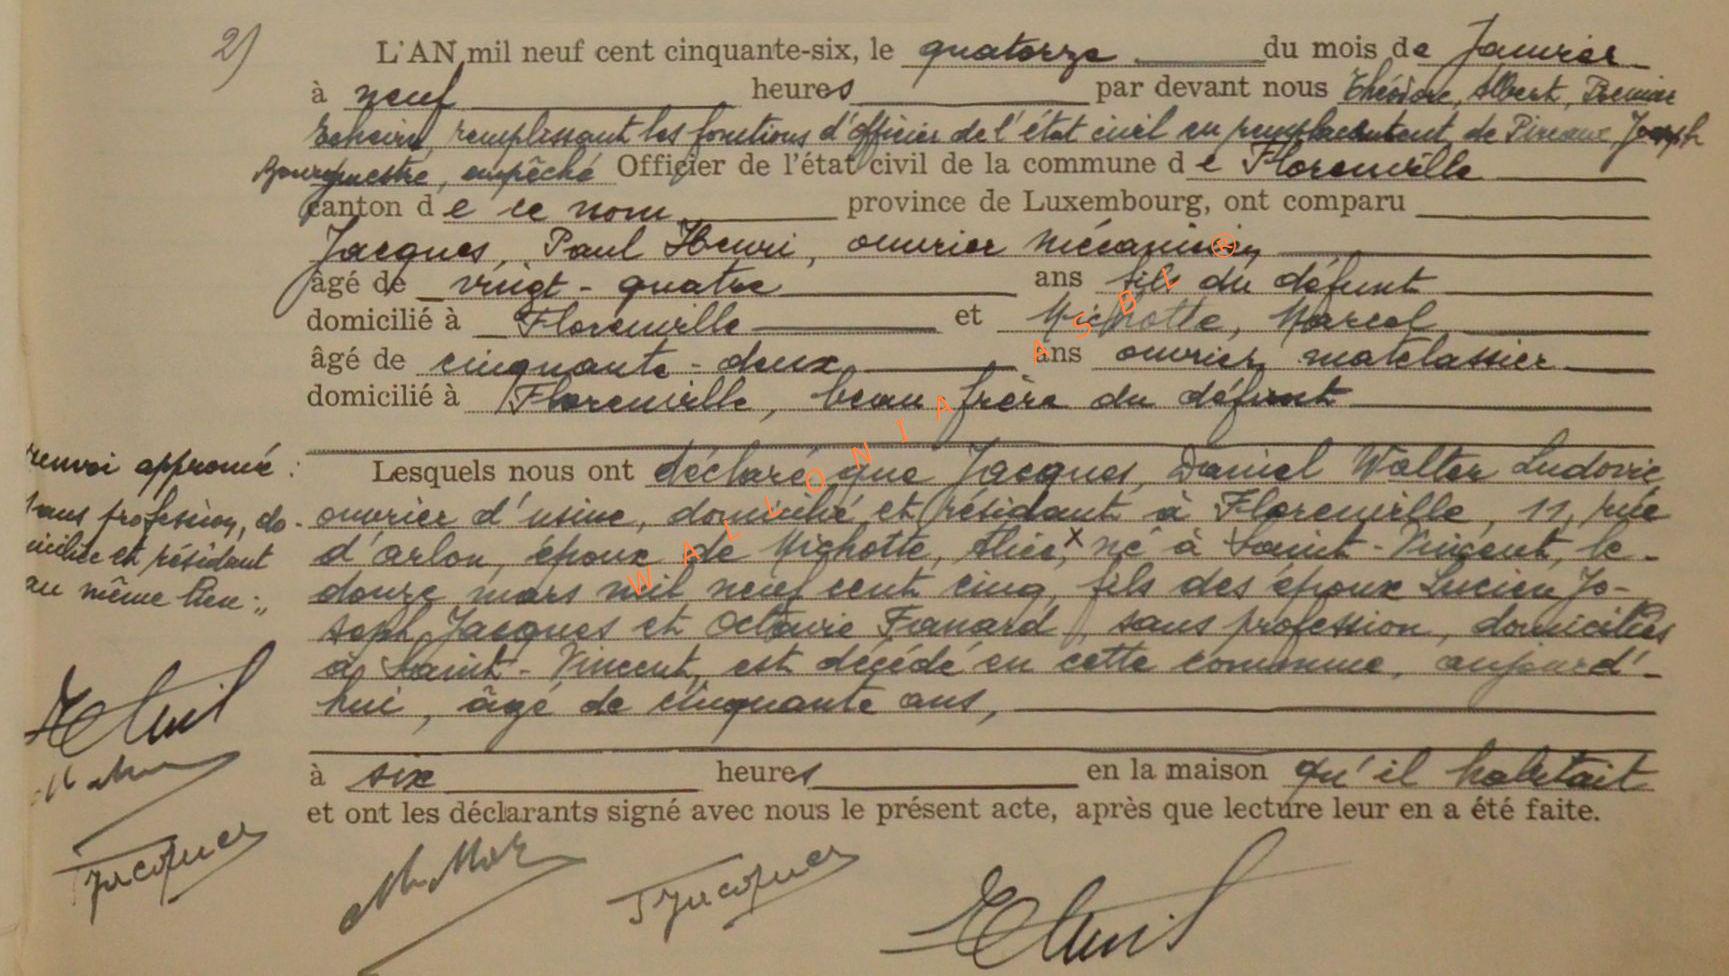 2)
L'AN mil neuf cent cinquante-six, le quatorze du mois de Janvier
à neuf heures par devant nous Théodore, Albert, Premier
Echevin, remplissant les fonctions d'officier de l'état civil en remplacement de Pireaux Joseph
Bourgmestre, empêché Officier de l'état civil de la commune de Florenville
canton de ce nom province de Luxembourg, ont comparu
Jacques, Paul Henri, ouvrier mécanicien
âgé de vingt-quatre ans fils du défunt
domicilié à Florenville et Michotte, Marcel
âgé de cinquante-deux ans ouvrier matelassier
domicilié à Florenville, beau frère du défunt
Lesquels nous ont déclaré que Jacques, Daniel Walter Ludovic
ouvrier d'usine, domicilié et résidant à Florenville, 11, rue
d'arlon, époux de Michotte, Alice, x né à Saint-Vincent, le
douze mars mil neuf cent cinq, fils des époux Lucien Jo-
seph Jacques et Octavie Fanard, sans profession, domiciliés
à Saint-Vincent, est décédé en cette commune, aujourd'-
hui, âgé de cinquante ans,
à six heures en la maison qu'il habitait
et ont les déclarants signé avec nous le présent acte, après que lecture leur en a été faite.
renvoi approuvé :
sans profession, do-
miciliée et résidant
au même lieu ;,
Jacques
Jacques
WALLONIA ASBL ®